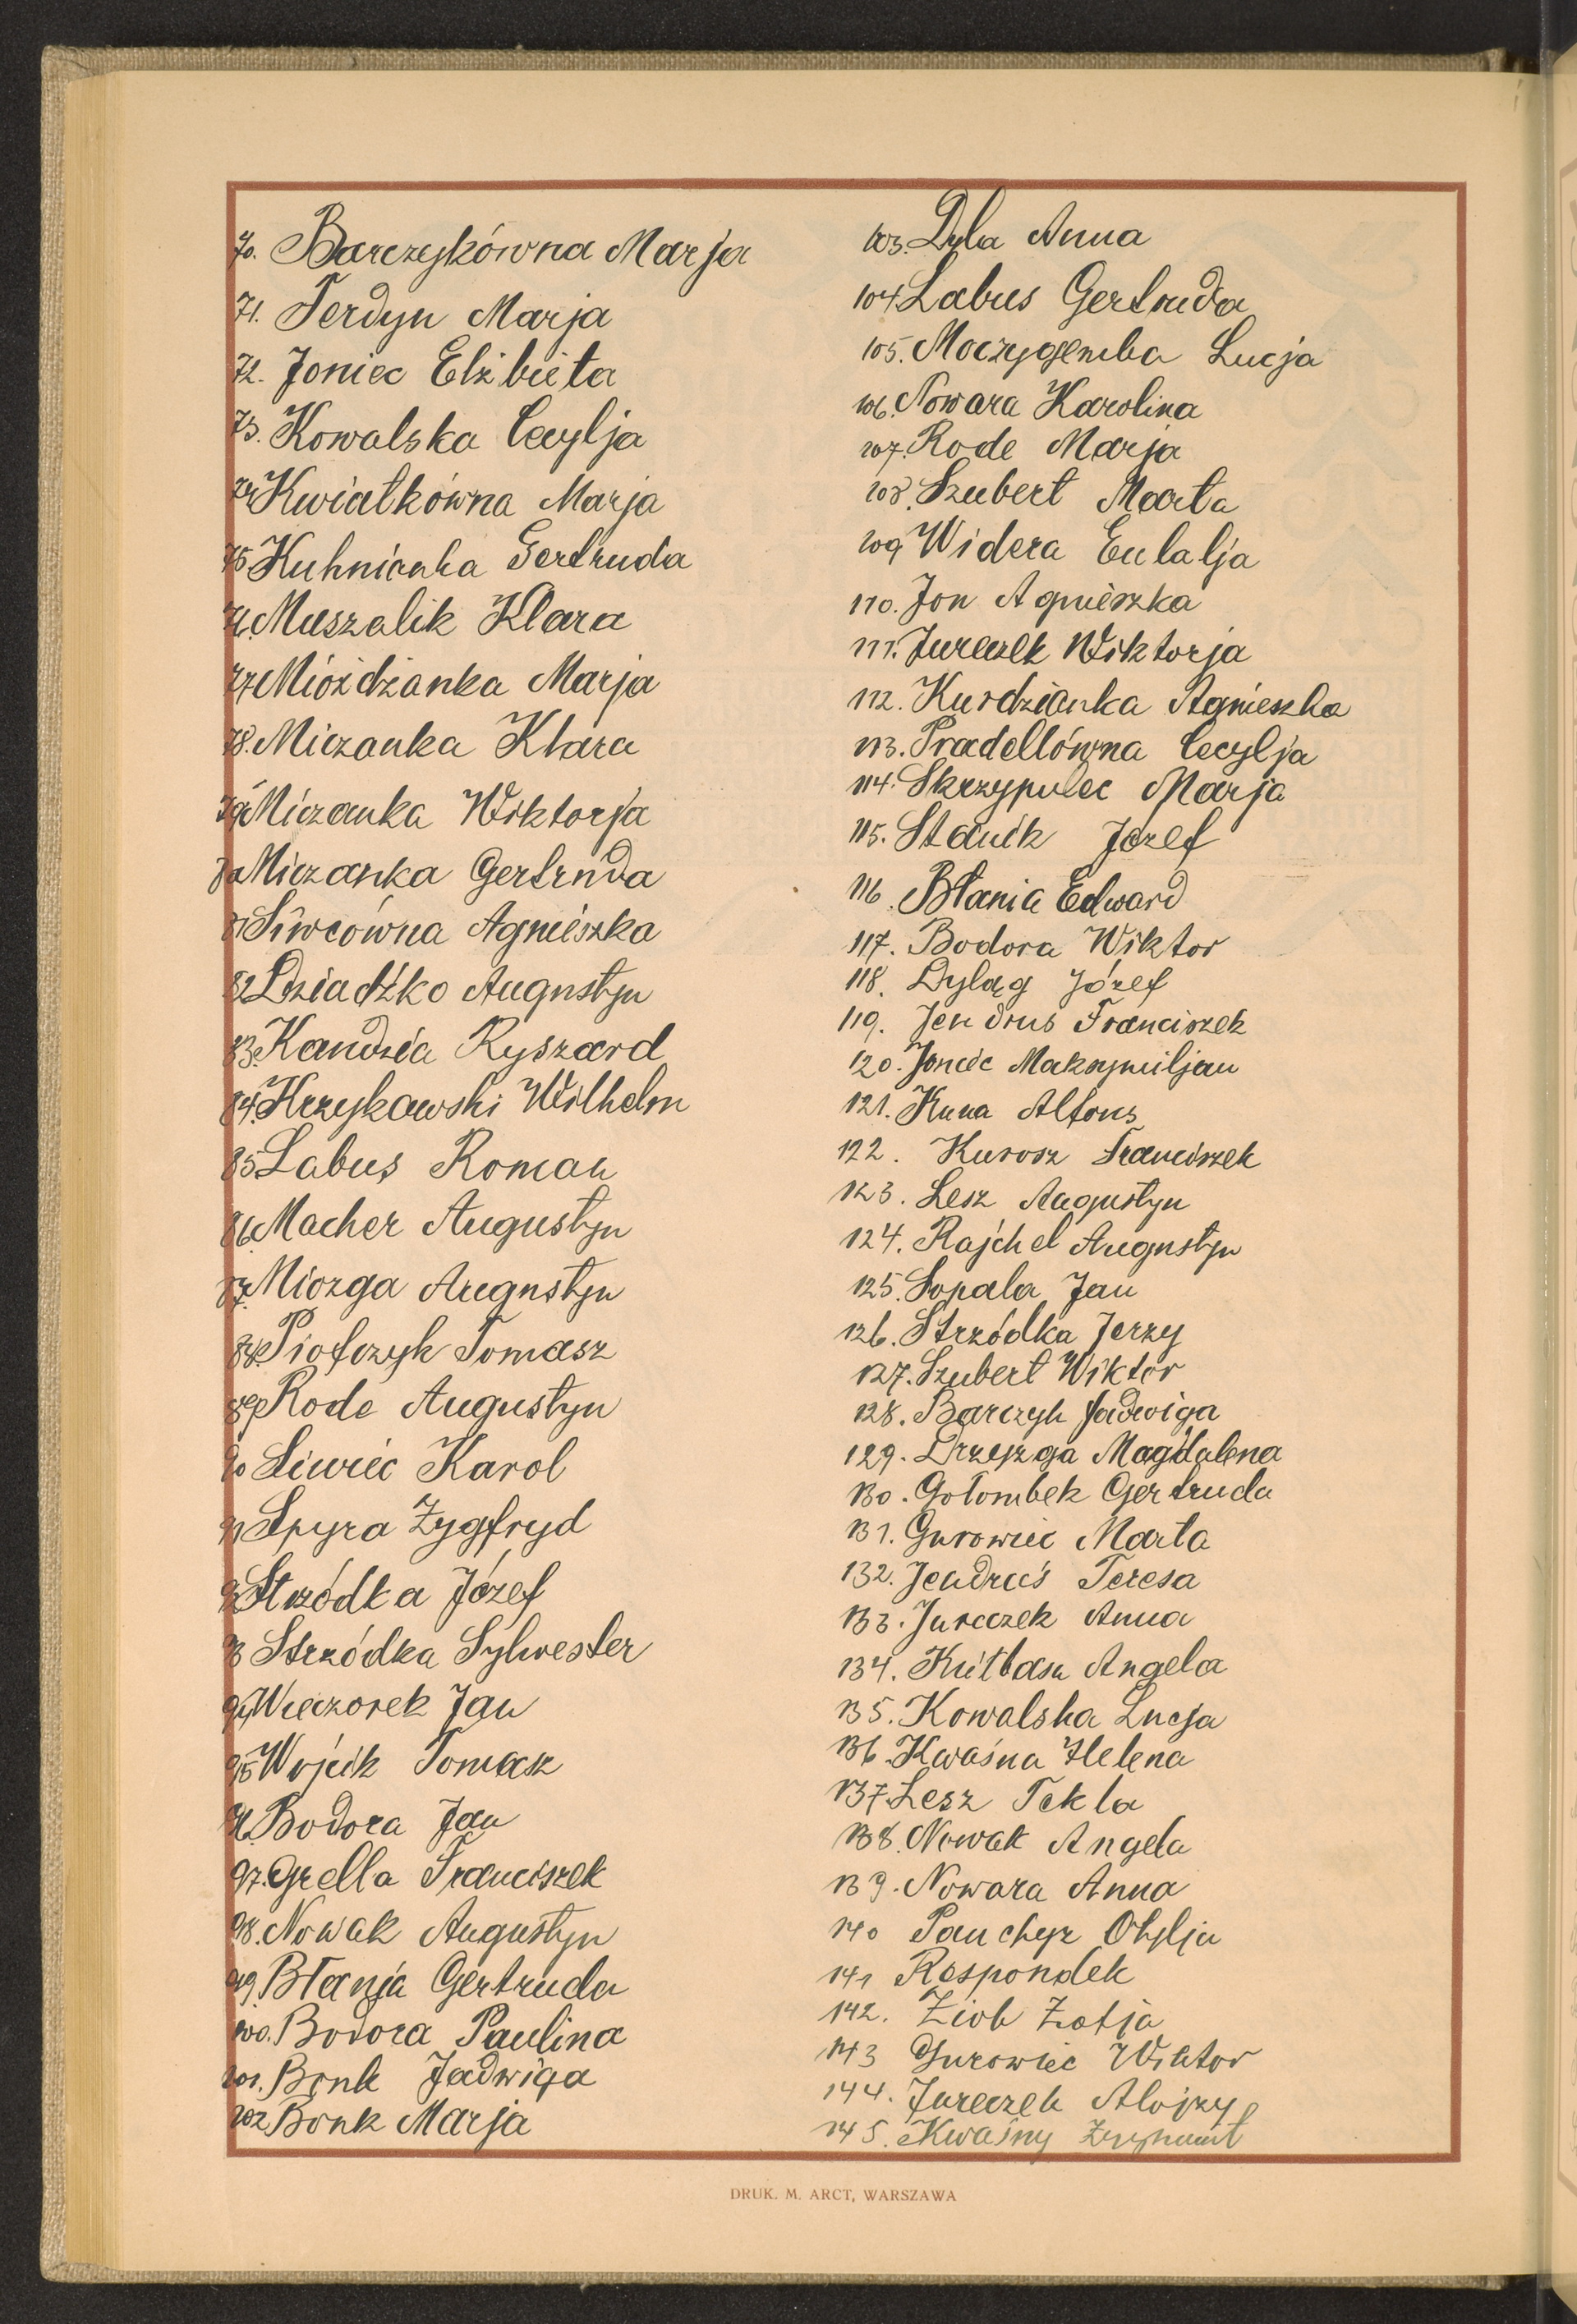 70. Barczykówna Marja
71. Ferdyn Marja
72. Joniec Elżbieta
73. Kowalska Cecylja
74 Kwiatkówna Marja
75 Kuhnianka Gertruda
76. Muszalik Klara
77 Mióżdżanka Marja
78. Miczanka Klara
79 Miczanka Wiktorja
80 Miczanka Gertruda
81 Siwcówna Agnieszka
82 Dziadźko Augustyn
83. Kandzia Ryszard
84. Krzykawski Wilhelm
85 Labus Roman
86. Macher Augustyn
87. Miozga Augustyn
88. Piofczyk Tomasz
89 Rode Augustyn
90 Siwiec Karol
91 Spyra Zygfryd
92 Strzódka Józef
93 Strzódka Sylwester
94 Wieczorek Jan
95 Wójcik Tomasz
96. Bodora Jan
97. Grella Franciszek
98. Nowak Augustyn
99. Błania Gertruda
100. Bodora Paulina
101. Bonk Jadwiga
102 Bonk Marja
103. Dyla Anna
104. Labus Gertruda
105. Moczygemba Łucja
106. Nowara Karolina
107. Rode Marja
108. Szubert Marta
109 Widera Eulalja
110. Jon Agnieszka
111. Jureczek Wiktorja
112. Kurdzianka Agnieszka
113. Pradellówna Cecylja
114. Skrzypulec Marja
115. Stanik Józef
116. Błania Edward
117. Bodora Wiktor
118. Dyląg Józef
119. Jendrus Franciszek
120. Joniec Maksymiljan
121. Kuna Alfons
122. Kurosz Franciszek
123. Lesz Augustyn
124. Rajchel Augustyn
125. Sopala Jan
126. Strzódka Jerzy
127. Szubert Wiktor
128. Barczyk Jadwiga
129. Drzęzga Magdalena
130. Gołombek Gertruda
131. Gurowiec Marta
132. Jendruś Teresa
133. Jureczek Anna
134. Kiełbasa Angela
135. Kowalska Łucja
136. Kwaśna Helena
137. Lesz Tekla
138. Nowak Angela
139. Nowara Anna
140 Panchyr Otylja
141 Respondek
142. Ziob Zofja
143 Gurowiec Wiktor
144. Jureczek Alojzy
145. Kwaśny Zygmunt
DRUK. M. ARCT, WARSZAWA